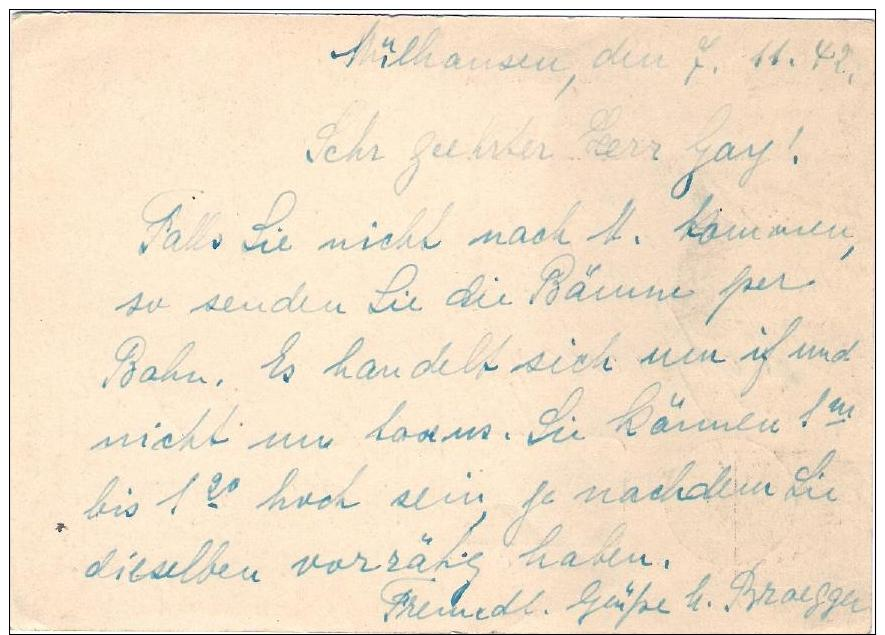 Mülhausen, den 7. 11. 42.
Sehr geehrter Herr Gay!
Falls Sie nicht nach M. kommen,
so senden Sie die Bäume per
Bahn. Es handelt sich um if und
nicht um taxus. Sie können 1 m
bis 1 20 hoch sein, je nachdem Sie
dieselben vorrätig haben.
Freundl. Grüße H. Bruegger